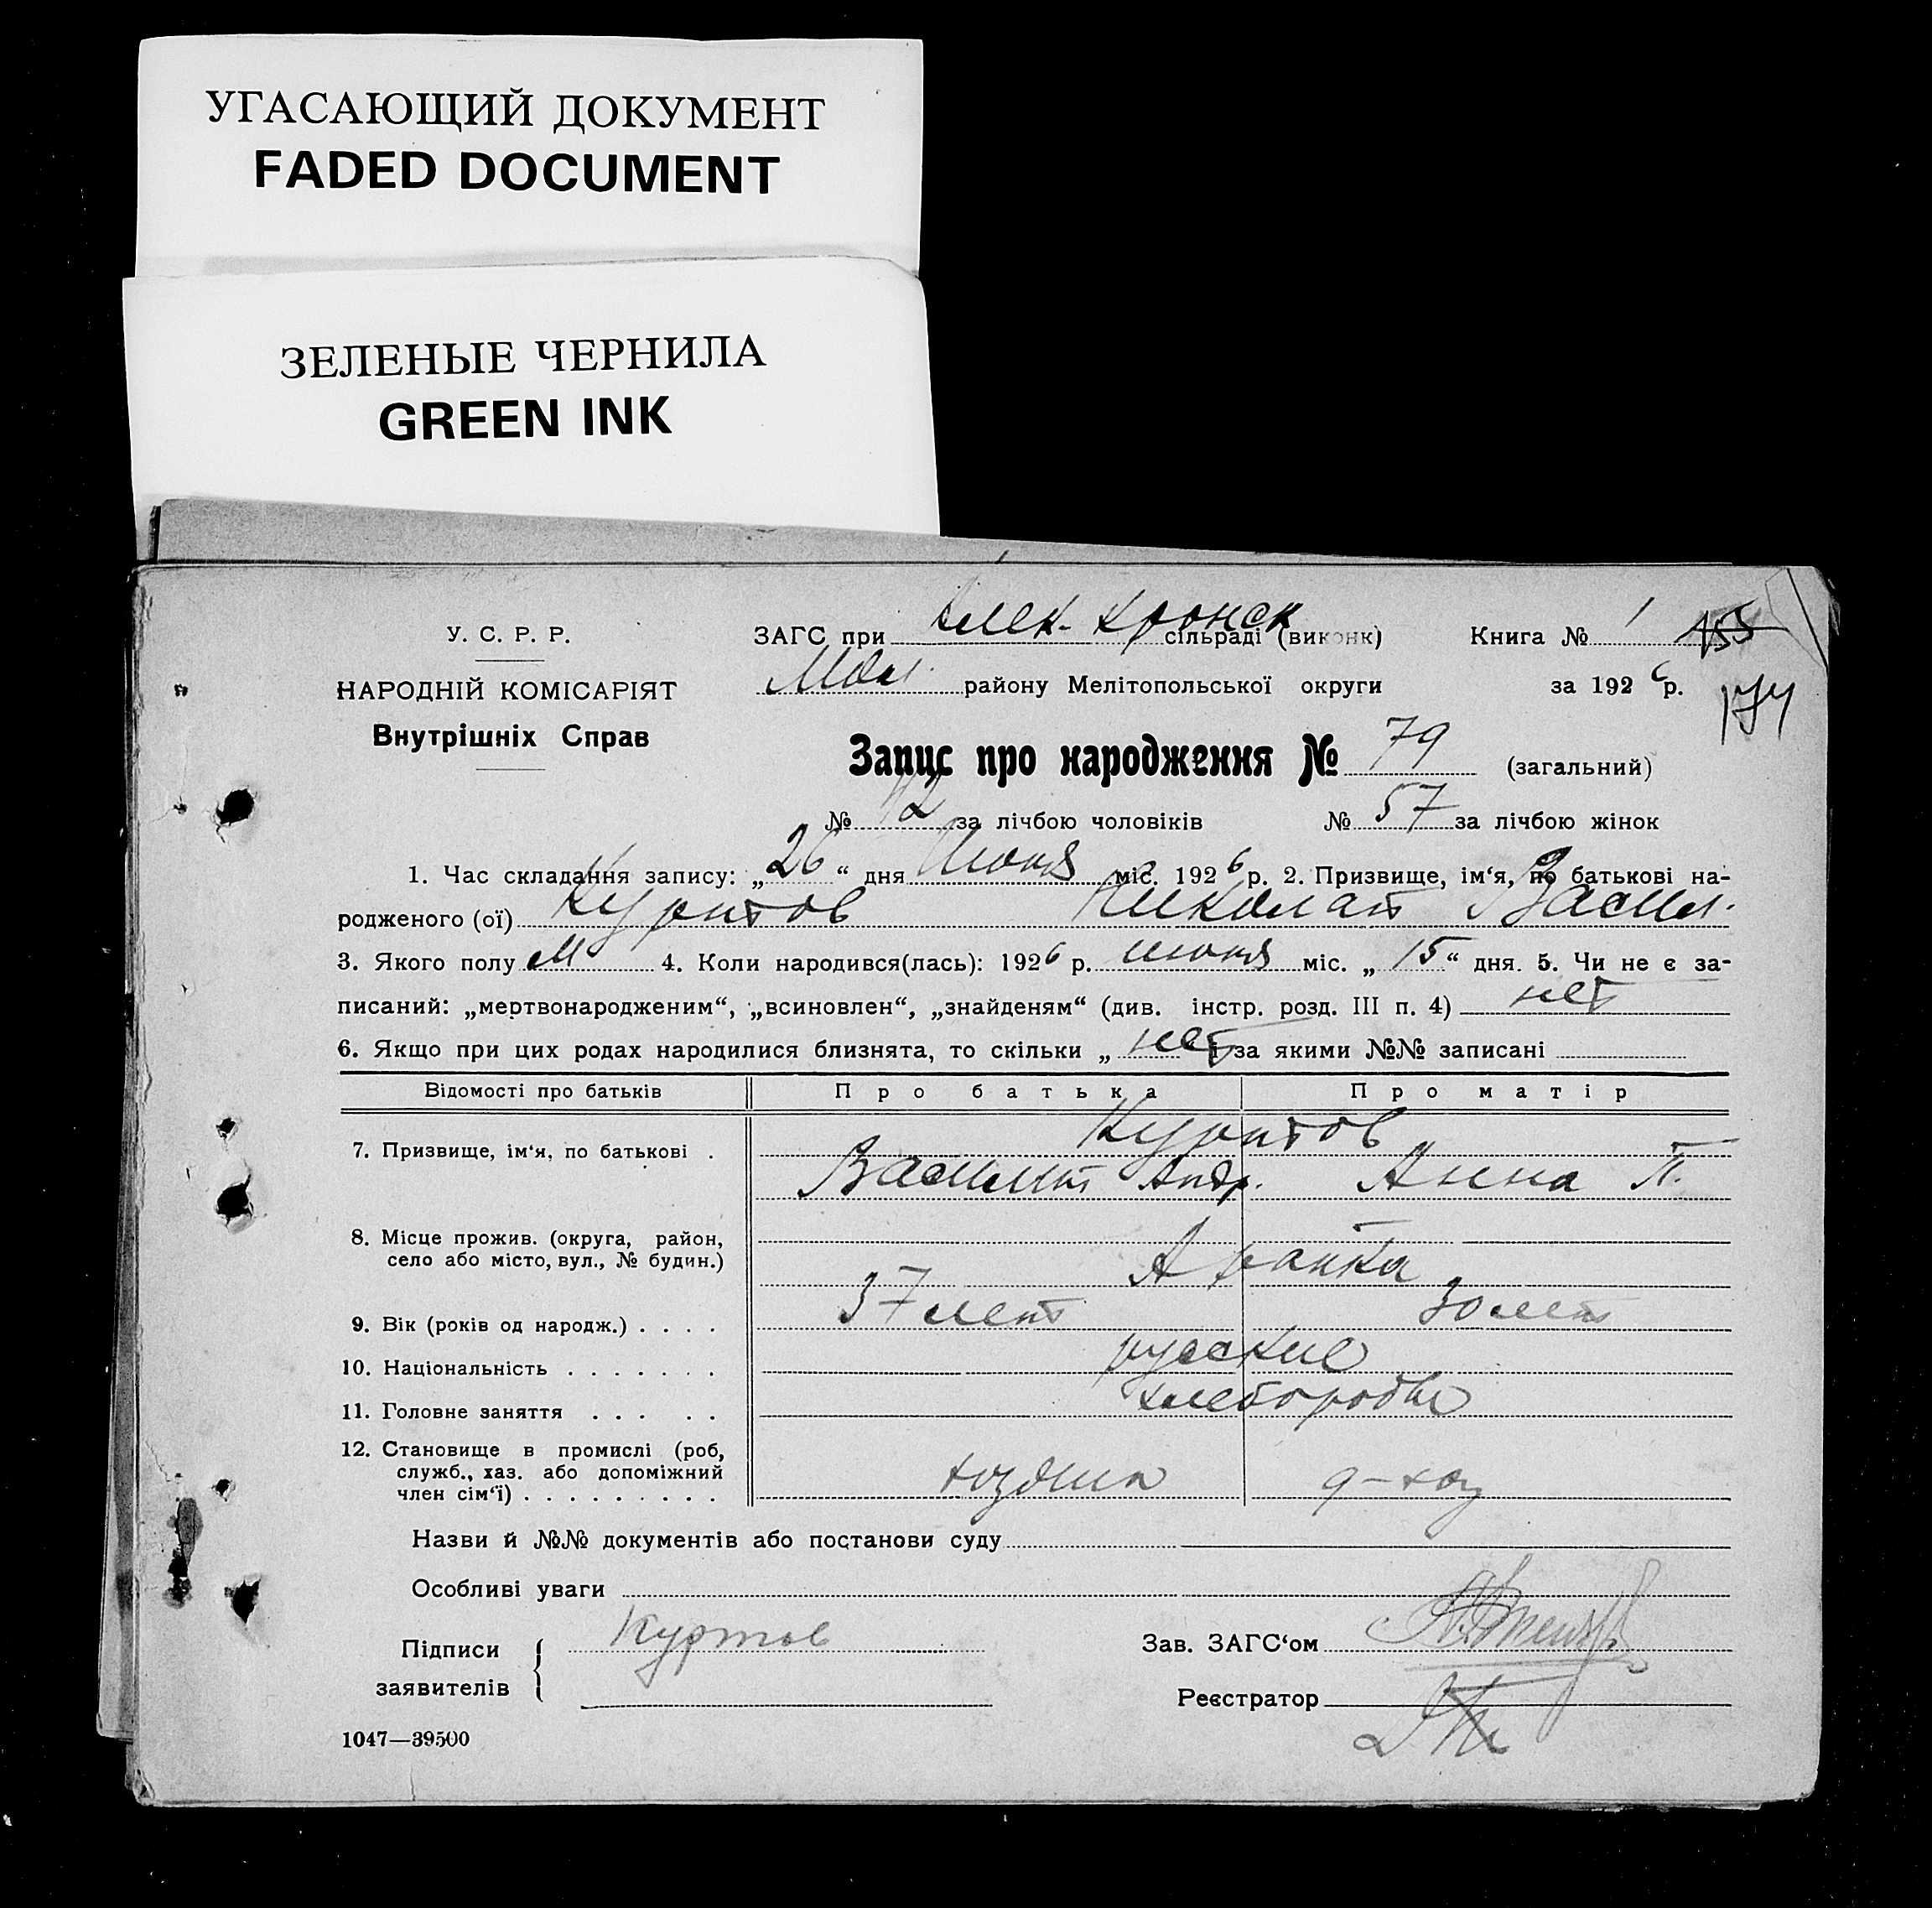 УГАСАЮЩИЙ ДОКУМЕНТ
FADED DOCUMENT
ЗЕЛЕНЫЕ ЧЕРНИЛА
GREEN INK
У. С. Р. Р.
НАРОДНІЙ КОМІСАРІЯТ
Внутрішніх Справ
ЗАГС при сільраді (виконк)
Книга № 1 155
району Мелітопольської округи
за 1926 р.
174
Запис про народження № 79 (загальний)
№ за лічбою чоловіків № 57 за лічбою жінок
1. Час складання запису: „26“ дня Июня міс. 1926 р. 2. Призвище, ім‘я, по батькові на-
родженого (ої) Куртов Николай Васил.
3. Якого полу М 4. Коли народився(лась): 1926 р. июня міс. „15“ дня. 5. Чи не є за-
писаний: „мертвонародженим“, „всиновлен“, „знайденям“ (див. інстр. розд. III п. 4) нет
6. Якщо при цих родах народилися близнята, то скільки „ нет за якими №№ записані
Відомості про батьків Про батька Про матір
7. Призвище, ім‘я, по батькові . Куртов
Василий Андр. Анна П.
8. Місце прожив. (округа, район,
село або місто, вул., № будин.)
9. Вік (років од народж.) . . . . 37 лет 30 лет
10. Національність . . . . . . . русские
11. Головне заняття . . . . .
12. Становище в промислі (роб,
служб., хаз. або допоміжний
член сім‘ї) . . . . . . . . .
Назви й №№ документів або постанови суду
Особливі уваги
Підписи
заявителів
Куртов
Зав. ЗАГС‘ом
Реєстратор
1047—39500